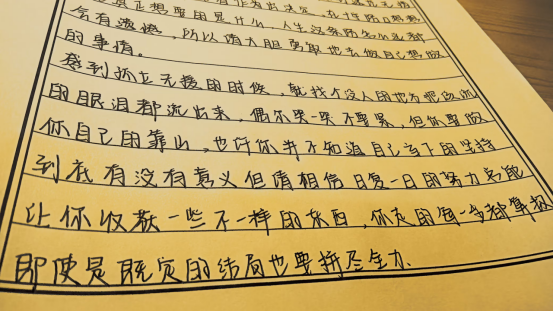 真正想要的是什么,人生没有
会有遗憾,所以请大胆勇敢地去做自己想做
的事情。
感到孤立无援的时候,就找个没人的地方把该流
的眼泪都流出来,偶尔哭一哭不要紧,但你要做
你自己的靠山,也许你并不知道自己当下的坚持
到底有没有意义但请相信日复一日的努力只能
让你收获一些不一样的东西,你走的每一步都算数
即使是既定的结局也要拼尽全力.